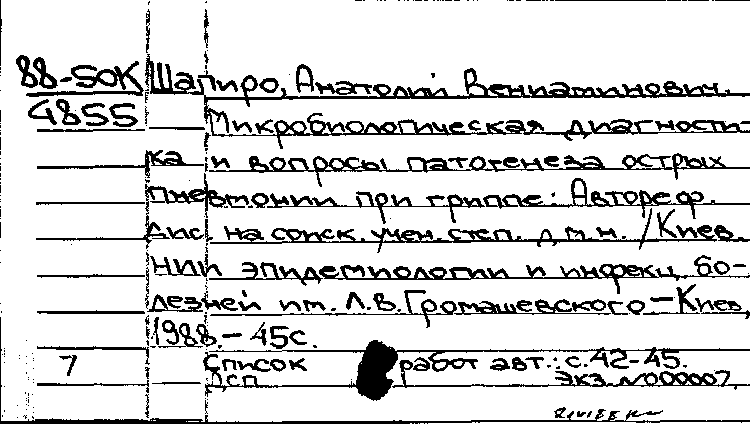 88-50К Шапиро, Анатолий Вениаминович.
4855 Микробиологическая диагности-
ка и вопросы патогенеза острых
пневмонии при гриппе: Автореф.
дис. на соиск. учен. степ. д.м.н. / Киев.
НИИ эпидемиологии и инфекц. бо-
лезней им. Л.В. Громашевского – Киев,
1988. – 45с.
7 Список работ авт.: с. 42-45.
ДСП Экз. N000007.